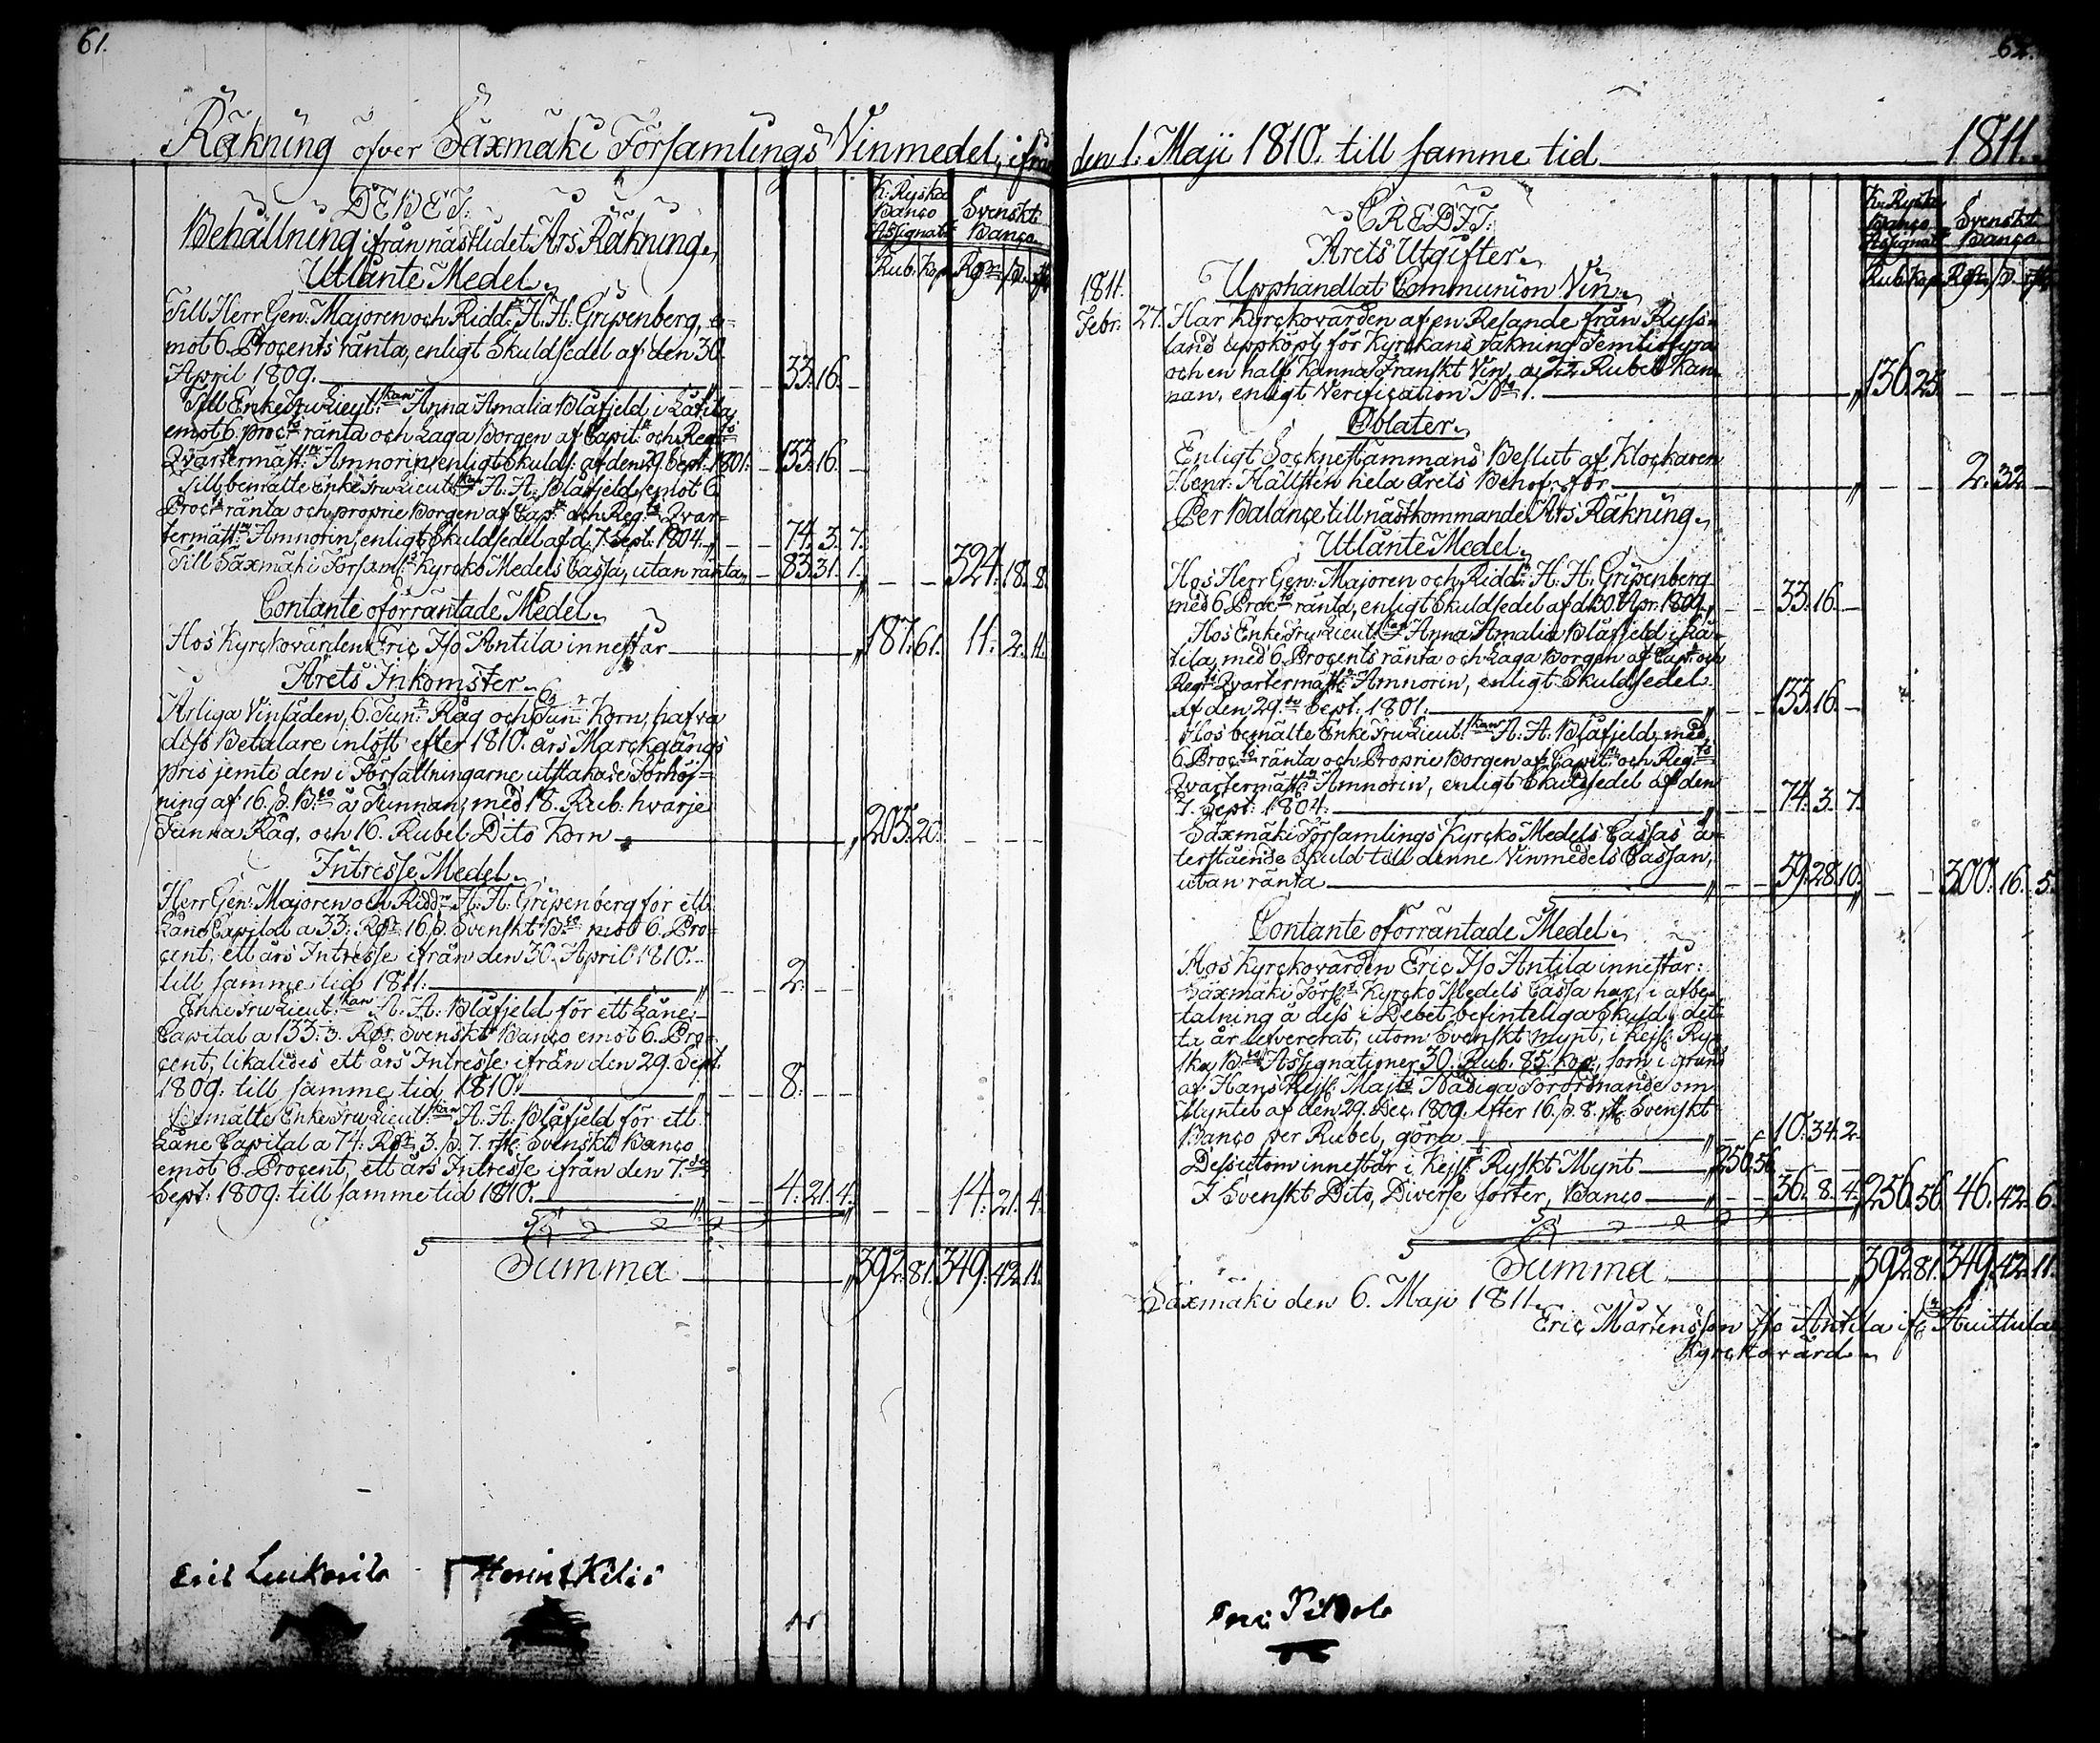 61.
Räkning öfver Säxmäki Församlings Vinmedel, ifrån
DEBET.
Behållning ifrån nästledet Års Räkning.
K. Ryska Banco Assignat:
Svenskt Banco
Rub. Kop. Rdr ß. rst
Utlånte Medel.
Till Herr Gen: Majoren och Ridd: H. H. Gripenberg, e=
mot 6. Procents ränta, enligt Skuldsedel af den 30.
April 1809. 33. 16. –
Till Enke Fru Lieut:skan Anna Amalia Blåfjeld i Låtila,
emot 6. Proc:ts ränta och Laga Borgen af Capit: och Reg:ts
Qvartermäst: Amnorin, enligt Skulds: af den 29. Sept. 1801. 133. 16. –
Till bemälte Enke Fru Lieut:skan A. A. Blåfjeld, emot 6.
Proc:ts ränta och proprie Borgen af Cap: och Reg:ts Qvar=
termäst: Amnorin, enligt Skuldsedel af d. 7. Sept. 1804. 74. 3. 7.
Till Säxmäki Förs:s Kyrcko Medels Cassa, utan ränta, 83. 31. 1. – – 324. 18. 8.
Contante oförräntade Medel.
Hos Kyrckovärden Eric Iso Antila innestår 187. 61. 11. 2. 11.
Årets Inkomster.
Årliga Vinsäden, 6. Tun:r Råg och 6 Tun:r Korn, hafva
dess Betalare inlöst efter 1810. års Marckgångs
pris jemte den i Författningarne utstakade Förhöj=
ning af 16. ß. B:co å Tunnan, med 18. Rub: hvarje
Tunna Råg, och 16. Rubel Dito Korn 205. 20. – – –
Intresse Medel.
Herr Gen: Majoren och Ridd:r H. H. Gripenberg för ett
Låne Capital a 33: Rdr 16 ß. Svenskt B:co mot 6. Pro=
cent, ett års Intresse ifrån den 30. April 1810.
till samme tid 1811. 2. – –
Enke Fru Lieut:skan A. A. Blåfjeld för ett Låne=
Capital a 133:3. Rdr Svenskt Banco emot 6. Pro=
cent, likaledes ett års Intresse ifrån den 29. Sept.
1809. till samme tid 1810. 8. – –
Bemälte Enke Fru Lieut:skan A. A. Blåfjeld för ett
Låne Capital a 74: Rdr 3. ß. 7. rst. Svenskt Banco
emot 6. Procent, ett års Intresse ifrån den 7.de
Sept: 1809. till samme tid 1810. 4. 21. 4. – – 14. 21. 4.
Summa 392. 81. 349. 42. 11.
Eric
62.
den 1. Maji 1810. till samme tid 1811.
CREDIT.
Årets Utgifter.
K. Ryska Banco Assignat:
Svenskt Banco
Rub. Kop. Rdr. ß. rst
Upphandlat Communion Vin.
1811.
Febr. 27. Har Kyrckovärden af en Resande från Ryss=
land uppköpt för Kyrckans räkning Femtiofyra
och en half Kanna Franskt Vin, a 2½ Rubel Kan=
nan, enligt Verification N:o 1. 136. 25. – – –
Oblater.
Enligt Sockneståmmans Beslut af Klockaren
Henr. Hällsten hela årets Behof för – – 2. 32. –
Per Balance till nästkommande Års Räkning.
Utlånte Medel.
Hos Herr Gen: Majoren och Ridd:r H. H. Gripenberg
med 6. Proc:ts ränta, enligt Skuldsedel af d. 30. Apr. 1809. 33. 16. –
Hos Enke Fru Lieut:skan Anna Amalia Blåfjeld i Lå=
tila, med 6. Procents ränta och Laga Borgen af Cap: och
Reg:ts Qvartermäst: Amnorin, enligt Skuldsedel
af den 29. Sept. 1801. 133. 16. –
Hos bemälte Enke Fru Lieut:skan A. A. Blåfjeld, med
6. Proc:ts ränta och Proprie Borgen af Capit: och Reg:ts
Qvartermäst: Amnorin, enligt Skuldsedel af den
7. Sept. 1804. 74. 3. 7.
Säxmäki Församlings Kyrcko Medels Cassas å=
terstående Skuld till denne Vinmedels Cassan,
utan ränta 59. 28. 10. – – 300. 16. 5.
Contante oförräntade Medel.
Hos Kyrckovärden Eric Iso Antila innestår:
Säxmäki Förs:s Kyrcko Medels Cassa har, i afbe=
talning å dess i Debet befinteliga Skuld, det=
ta år lefvererat, utom Svenskt mynt, i Kejs. Ry=
ska B:co Assignationer 30. Rub. 85. Kop., som i grund
af Hans Kejs: Maj:ts Nådiga Förordnande om
Myntet af den 29. Dec. 1809. efter 16. ß. 8. rst. Svenskt
Banco per Rubel, göra 10. 34. 2.
Dessutom innestår i Kejs: Ryskt Mynt 256. 56. – – –
I Svenskt Dito, Diverse sorter, Banco 36. 8. 4. 256. 56. 46. 42. 6.
Summa 392. 81. 349. 42. 11.
Säxmäki den 6. Maji 1811.
Eric Mårtensson Iso Antila ifr: Huittula
Kyrckovärd.